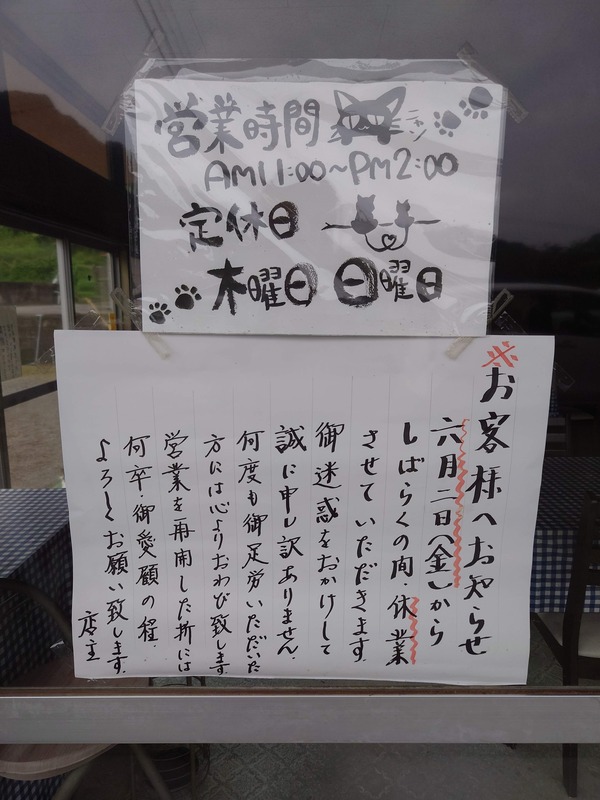 営業時間 ニャン
AM11:00~PM2:00
定休日
木曜日 日曜日
※お客様へお知らせ
六月二日(金)から
しばらくの間・休業
させていただきます。
御迷惑をおかけして
誠に申し訳ありません。
何度も御足労いただいた
方には心よりおわび致します。
営業を再開した折には
何卒・御愛顧の程
よろしくお願い致します。
店主